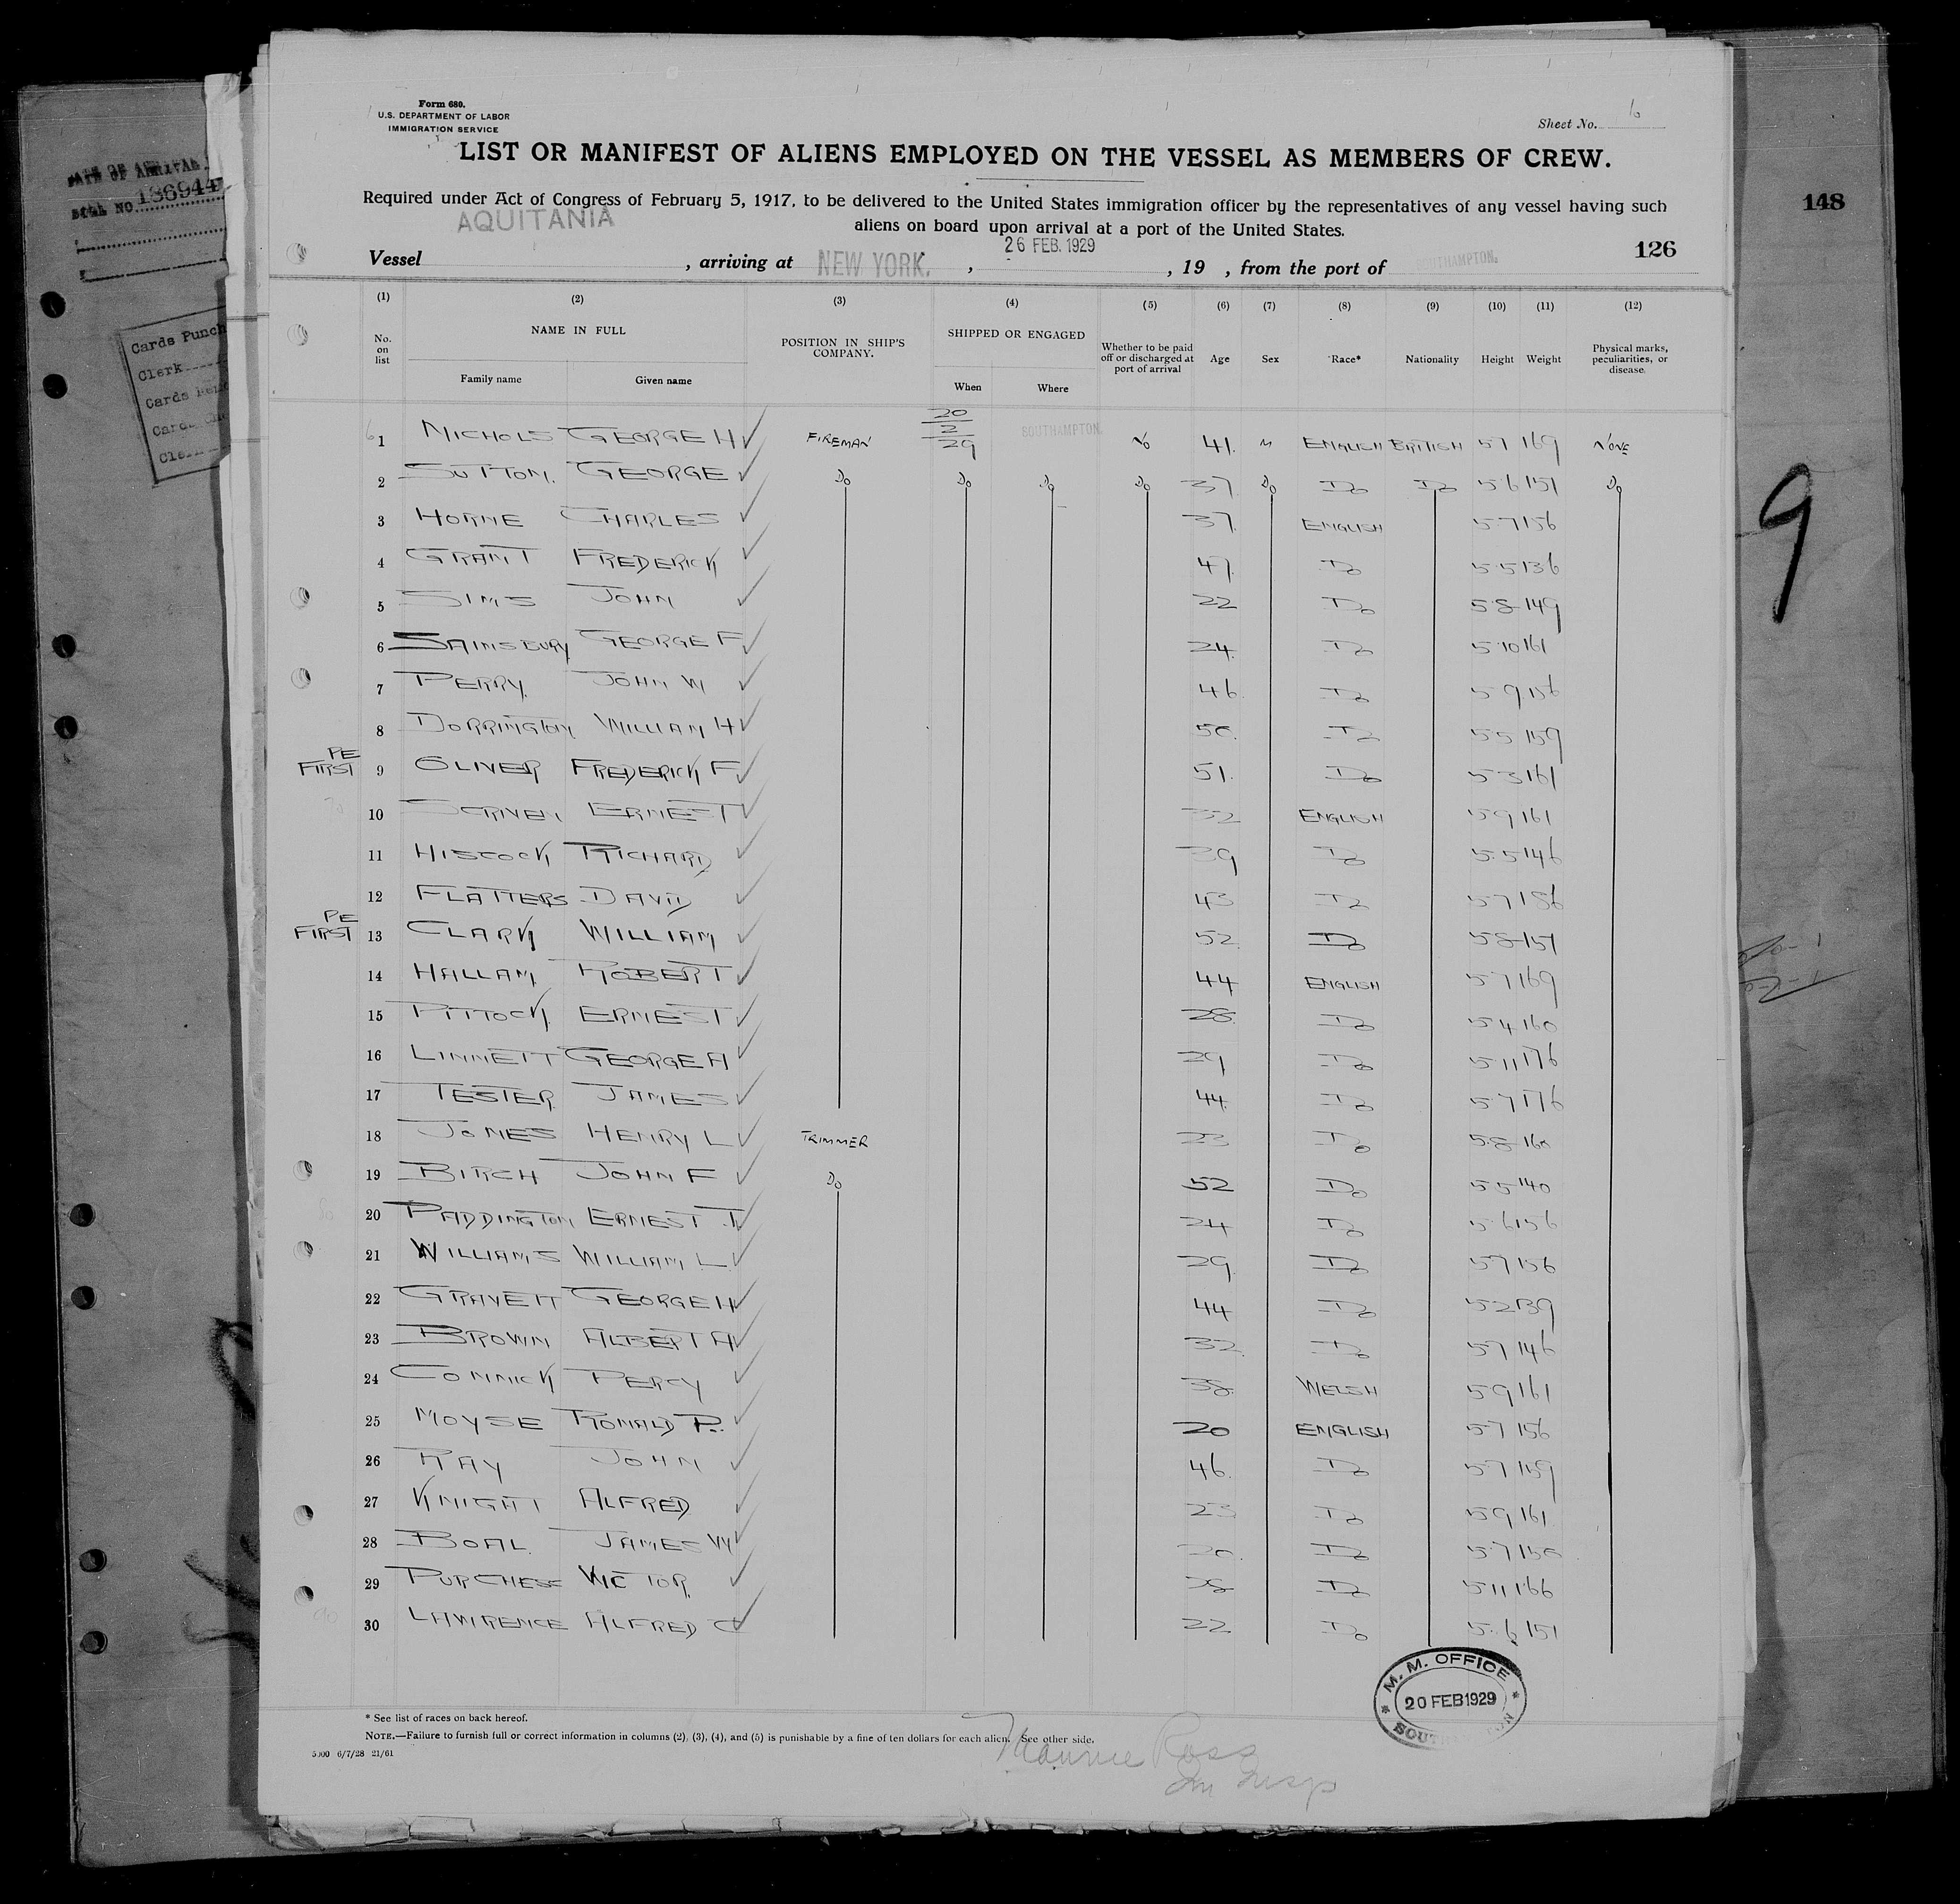 Form 680.
U.S. DEPARTMENT OF LABOR
IMMIGRATION SERVICE
Sheet No. 6
LIST OR MANIFEST OF ALIENS EMPLOYED ON THE VESSEL AS MEMBERS OF CREW.
Required under Act of Congress of February 5, 1917, to be delivered to the United States immigration officer by the representatives of any vessel having such
aliens on board upon arrival at a port of the United States.
Vessel AQUITANIA, arriving at NEW YORK., 26 FEB. 1929, 19 , from the port of SOUTHAMPTON.
126
148
9
DATE OF ARRIVAL
BOOK NO. 136944
Cards Punch
Clerk
Cards
Cards
Clerk
(1) (2) (3) (4) (5) (6) (7) (8) (9) (10) (11) (12)
No. on list NAME IN FULL POSITION IN SHIP'S COMPANY. SHIPPED OR ENGAGED Whether to be paid off or discharged at port of arrival Age Sex Race* Nationality Height Weight Physical marks, peculiarities, or disease.
Family name Given name When Where
1 NICHOLS GEORGE H FIREMAN 20/2/29 SOUTHAMPTON. No 41. M ENGLISH BRITISH 5·7 169 NONE
2 SUTTON. GEORGE Do Do Do Do 37 Do Do Do 5·6 151 Do
3 HORNE CHARLES 37. ENGLISH 5·7 156
4 GRANT FREDERICK 47. Do 5·5 136
5 SIMS JOHN 22 Do 5·8 149
6 SAINSBURY GEORGE F 24. Do 5·10 161
7 PERRY. JOHN W 46. Do 5·9 156
8 DORRINGTON WILLIAM H 50. Do 5·5 159
PE FIRST 9 OLIVER FREDERICK F 51. Do 5·3 161
10 SCRIVEN ERNEST 32 ENGLISH 5·9 161
11 HISCOCK RICHARD 39 Do 5·5 146
12 FLATTERS DAVID 43 Do 5·7 186
PE FIRST 13 CLARK WILLIAM 52. Do 5·8 151
14 HALLAM ROBERT 44 ENGLISH 5·7 169
15 PITTOCK ERNEST 28. Do 5·4 160
16 LINNETT GEORGE A 29 Do 5·11 176
17 TESTER JAMES 44. Do 5·7 176
18 JONES HENRY L TRIMMER 23 Do 5·8 160
19 BIRCH JOHN F Do 52 Do 5·5 140
20 PADDINGTON ERNEST J. 24 Do 5·6 156
21 WILLIAMS WILLIAM L. 29. Do 5·7 156
22 GRAVETT GEORGE H 44 Do 5·2 139
23 BROWN ALBERT A 32. Do 5·7 146
24 CONNICK PERCY 38. WELSH 5·9 161
25 MOYSE RONALD P. 20 ENGLISH 5·7 156
26 RAY JOHN 46. Do 5·7 159
27 KNIGHT ALFRED 23 Do 5·9 161.
28 BOAL. JAMES W 20. Do 5·7 156
29 PURCHESE VICTOR. 38 Do 5·11 166
30 LAWRENCE ALFRED C 22 Do 5·6 151
M. M. OFFICE
20 FEB 1929
* See list of races on back hereof.
NOTE.—Failure to furnish full or correct information in columns (2), (3), (4), and (5) is punishable by a fine of ten dollars for each alien. See other side.
5000 6/7/28 21/61
Maurice Ross
Im Insp